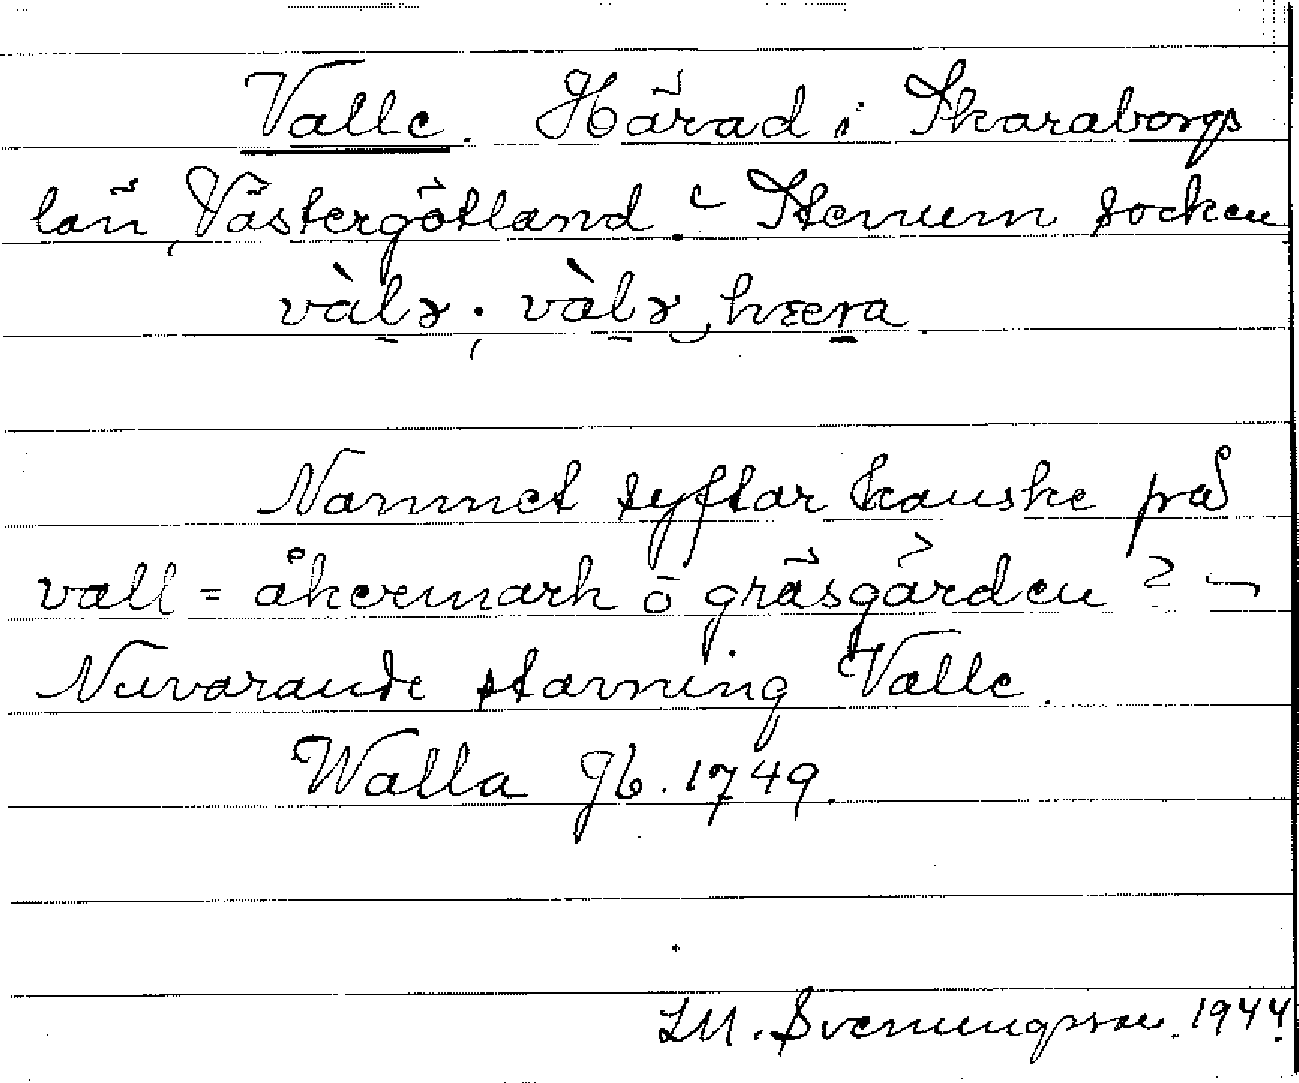 Valle. Härad i Skaraborgs
län, Västergötland. - Stenum socken
vàlɜ; vàlɜ hæra
Namnet syftar kanske på
vall = åkermark o gräsgården? -
Nuvarande stavning Valle.
Walla Jb. 1749.
LM. Svenungsson. 1944.